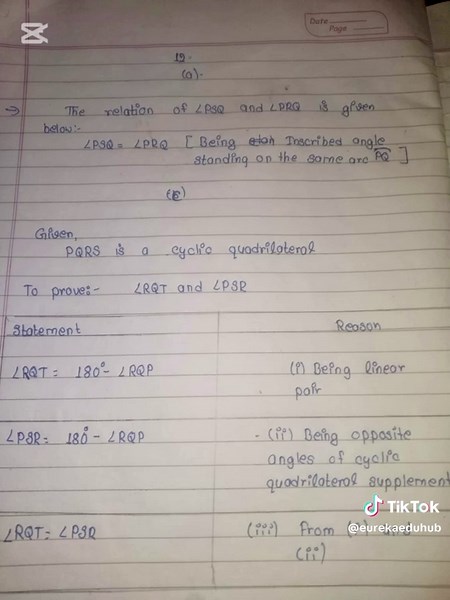 Date
Page
19.
(a).
→ The relation of ∠PSQ and ∠PRQ is given
below:-
∠PSQ = ∠PRQ [ Being Inscribed angle
standing on the same arc PQ ]
Given,
PQRS is a cyclic quadrilateral
To prove:- ∠RQT and ∠PSR
Statement Reason
∠RQT = 180° - ∠RQP (i) Being linear
pair
∠PSR = 180° - ∠RQP - (ii) Being opposite
angles of cyclic
quadrilateral supplement
∠RQT = ∠PSQ (iii) From
(ii)
TikTok
@eurekaeduhub